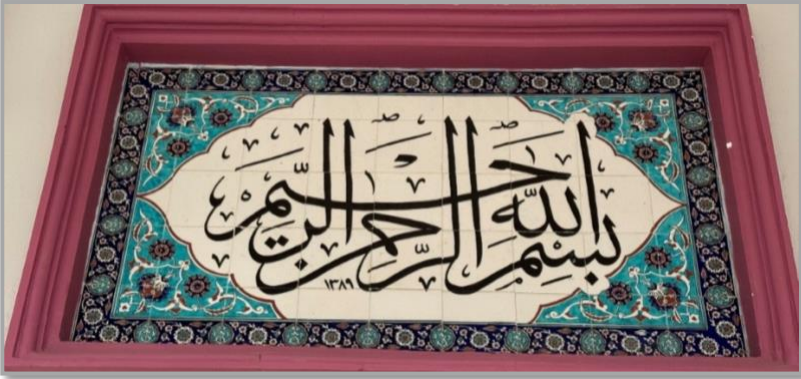 بسم الله الرحمن الرحيم
١٣٨٩